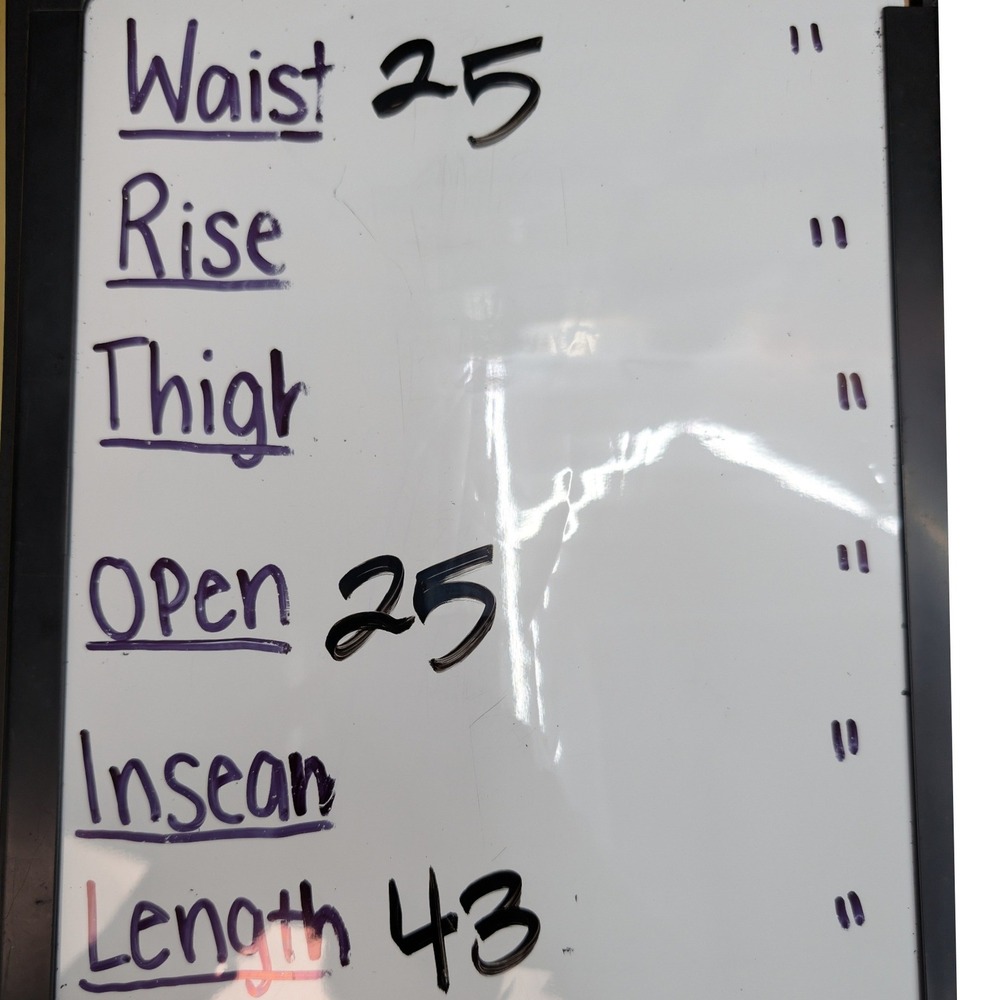 Waist 25 "
Rise "
Thigh "
Open 25 "
Inseam "
Length 43 "